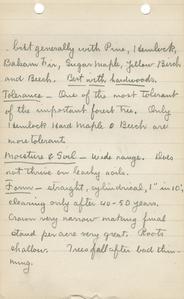 . but generally with Pine, Hemlock,
Balsam Fir, Sugar Maple, Yellow Birch
and Beech. Best with hardwoods.
Tolerance – One of the most tolerant
of the important forest trees. Only
Hemlock Hard Maple & Beech are
more tolerant.
Moisture & Soil – Wide range. Does
not thrive on soils.
Form – straight, cylindrical, 1" in 10',
clearing only after 40-50 years.
Crown very narrow making final
stand per acre very great. Roots
shallow. Trees fall after bad thin-
ning.